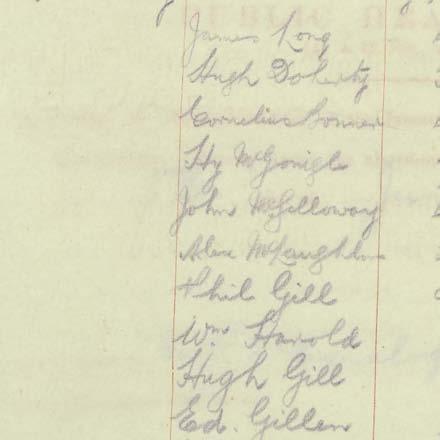 James Long
Hugh Doherty
Cornelius Bonner
Hy McGonigle
John McGilloway
Alex McLaughlin
Phil Gill
Wm Harold
Hugh Gill
Ed. Gillen